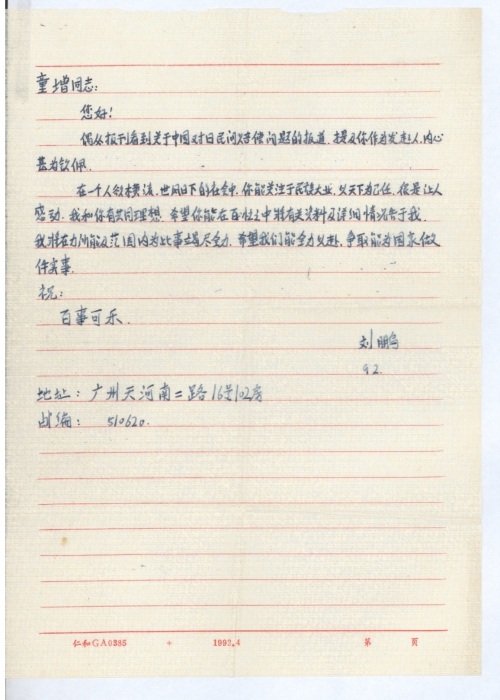 童增同志:
您好!
偶从报刊看到关于中国对日民间索偿问题的报道,提及你作为发起人,内心
甚为钦佩。
在一个人欲横流,世风日下的社会中,你能关注于民族大业,以天下为己任,很是让人
感动。我和你有共同理想,希望你能在百忙之中将有关资料及详细情况寄于我,
我将在力所能及范围内为此事业尽全力,希望我们能全力以赴,争取能为国家做
件实事。
祝:
百事可乐.
刘鹏
9 2.
地址: 广州天河南二路16号102房
邮编: 510620.
仁和GA0385 + 1992.4 第 页